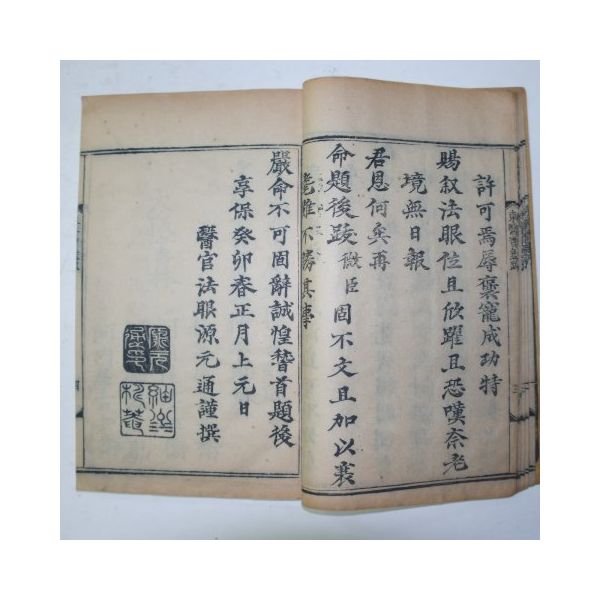 許可焉辱褒寵成功特
賜叙法眼位且欣躍且恐嘆奈老
境無日報
君恩何矣再
命題後跋微臣固不文且加以衰
耄雖不勝其專
嚴命不可固辭誠惶稽首題後
享保癸卯春正月上元日
醫官法眼源元通謹撰